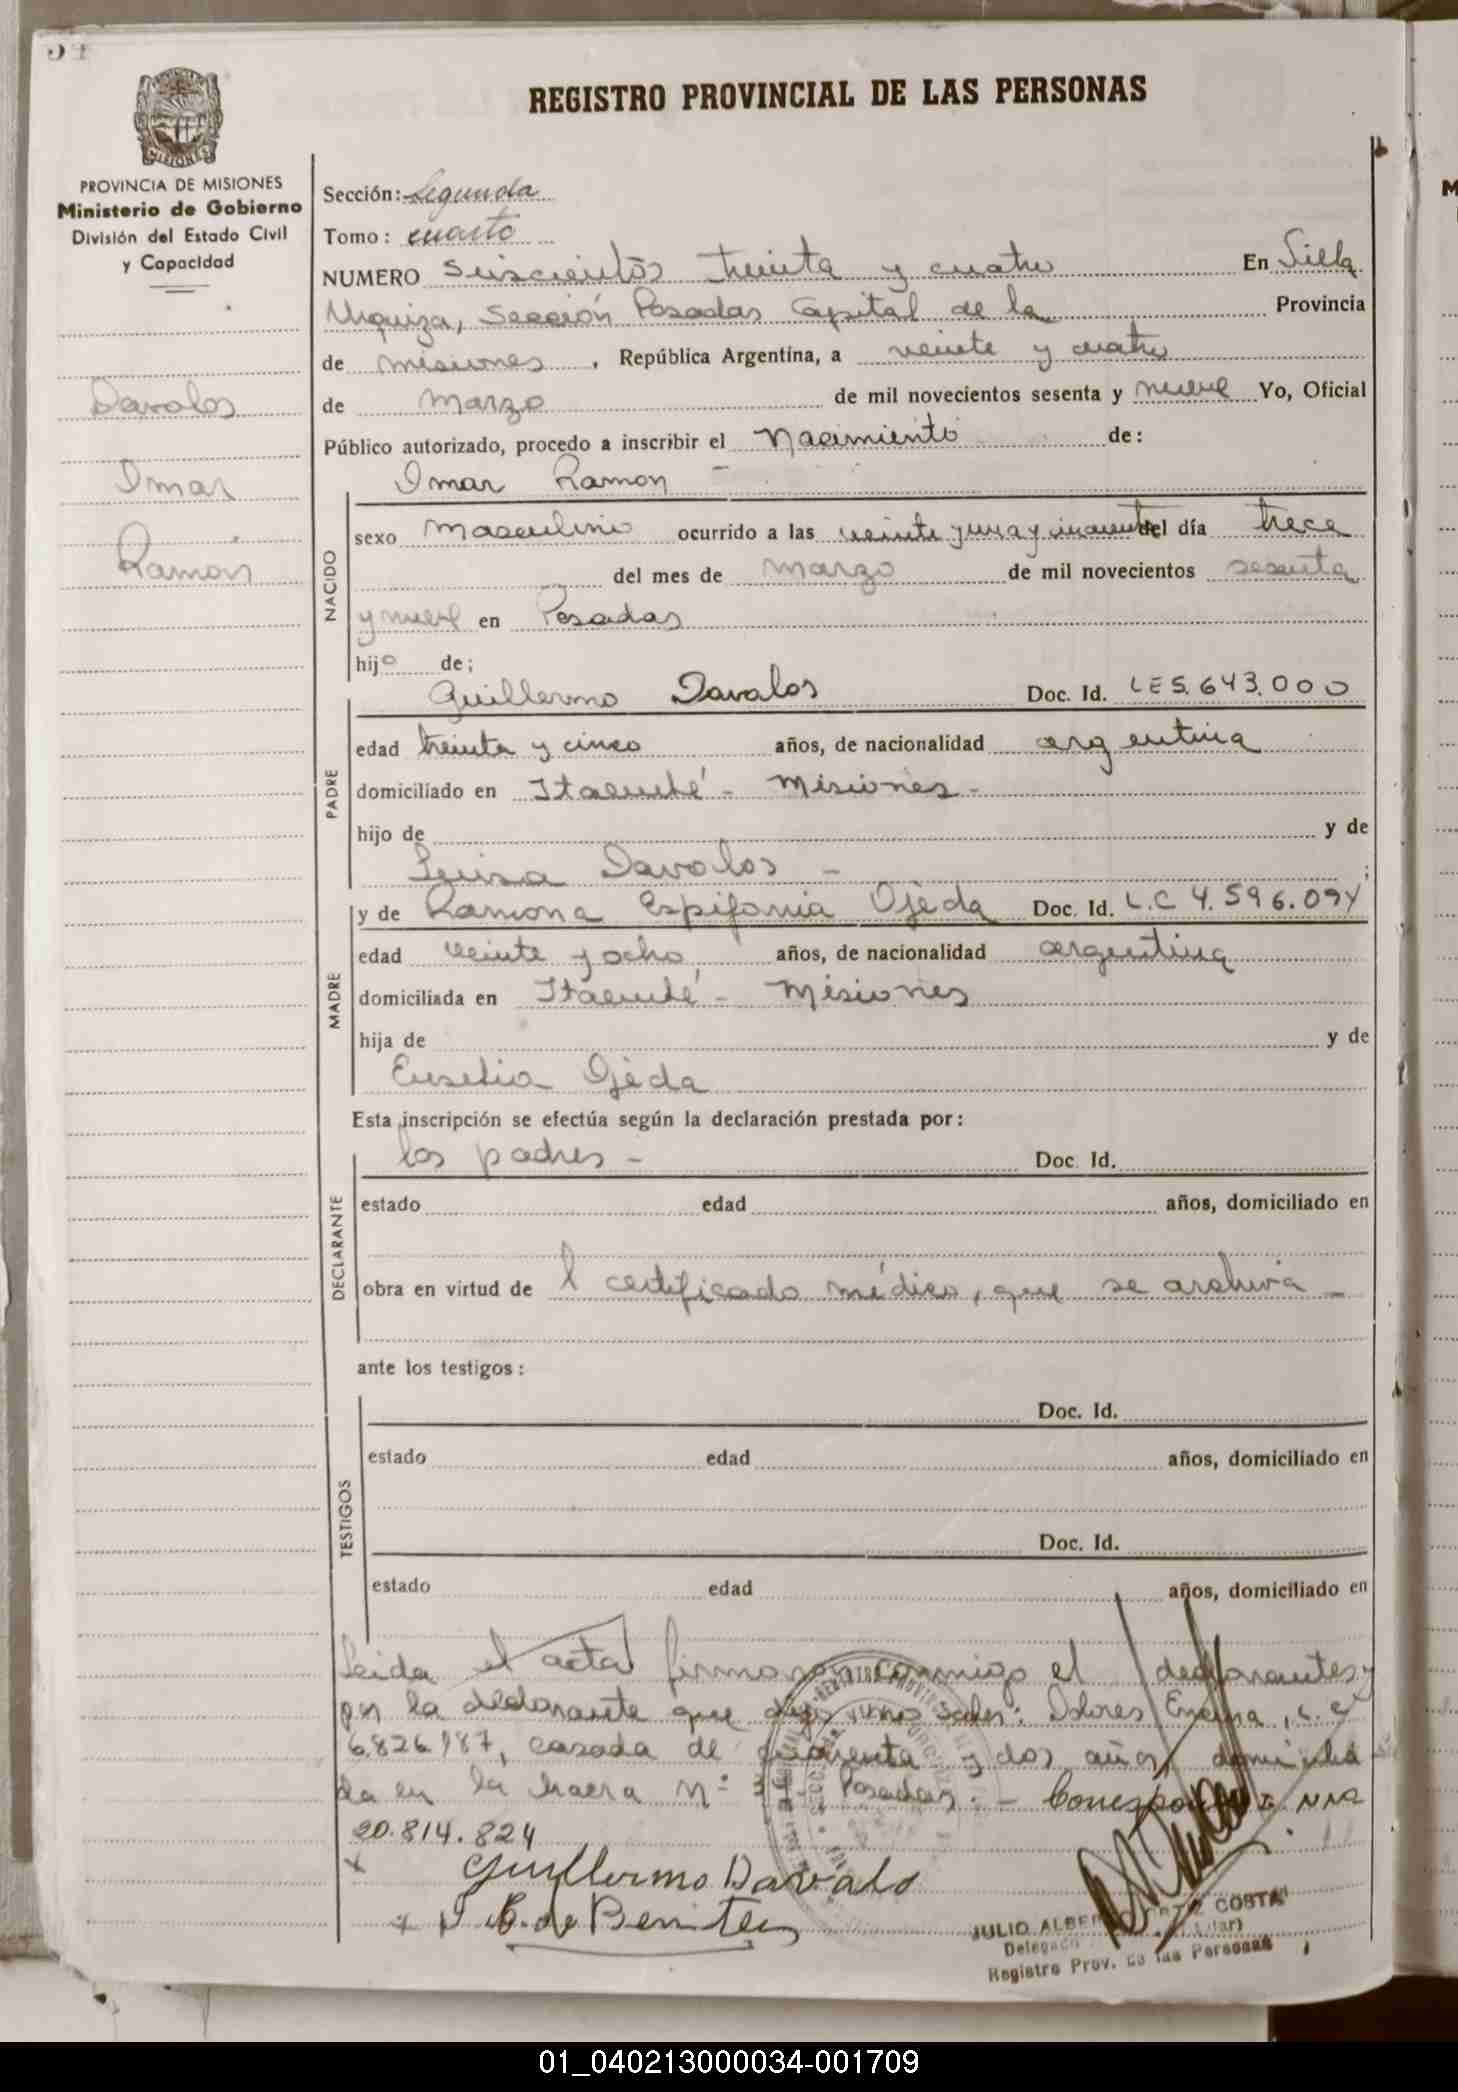 REGISTRO PROVINCIAL DE LAS PERSONAS
MISIONES
PROVINCIA DE MISIONES
Ministerio de Gobierno
División del Estado Civil
y Capacidad
Davalos
Omar
Ramon
Sección: Segunda
Tomo: cuarto
NUMERO Seiscientos treinta y cuatro En Villa
Urquiza, Sección Posadas Capital de la Provincia
de misiones, República Argentina, a veinte y cuatro
de marzo de mil novecientos sesenta y nueve Yo, Oficial
Público autorizado, procedo a inscribir el Nacimiento de:
Omar Ramon -
NACIDO
sexo masculino ocurrido a las veinte y una y cincuenta del día trece
del mes de marzo de mil novecientos sesenta
y nueve en Posadas
hijo de;
Guillermo Davalos Doc. Id. LE 5.643.000
PADRE
edad treinta y cinco años, de nacionalidad argentina
domiciliado en Itaembé - Misiones -
hijo de y de
Luisa Davalos - ;
y de Ramona Espifania Ojeda Doc. Id. L.C 4.596.094
MADRE
edad veinte y ocho años, de nacionalidad argentina
domiciliada en Itaembé - Misiones
hija de y de
Eusebia Ojeda
Esta inscripción se efectúa según la declaración prestada por:
los padres - Doc. Id.
DECLARANTE
estado edad años, domiciliado en
obra en virtud de l certificado médico, que se archiva -
ante los testigos:
Doc. Id.
TESTIGOS
estado edad años, domiciliado en
Doc. Id.
estado edad años, domiciliado en
Leida el acta firman conmigo el declarantes y
por la declarante que dijo no saber: Dolores Encina, L.C
6.826.187, casada de cuarenta y dos años, domicilia
da en la chacra Nº Posadas. - Corresponde I. NRO
20.814.824
Guillermo Davalo
E. de Benitez
JULIO ALBERTO ORTIZ COSTA
Delegado
Registro Prov. de las Personas
01_040213000034-001709